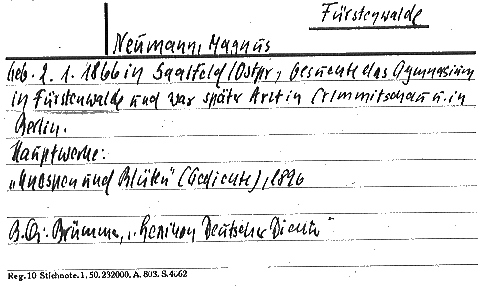 Fürstenwalde
Neumann, Magnus
Geb. 2. 1. 1866 in Saalfeld/Ostpr, besuchte das Gymnasium
in Fürstenwalde und war später Arzt in Crimmitschau u. in
Berlin.
Hauptwerke:
„Knospen und Blüten" (Gedichte), 1896
B. Q.: Brümmer, „Lexikon Deutscher Dichter"
Reg. 10 Stichnote. 1, 50. 232000. A. 803. S. 4662